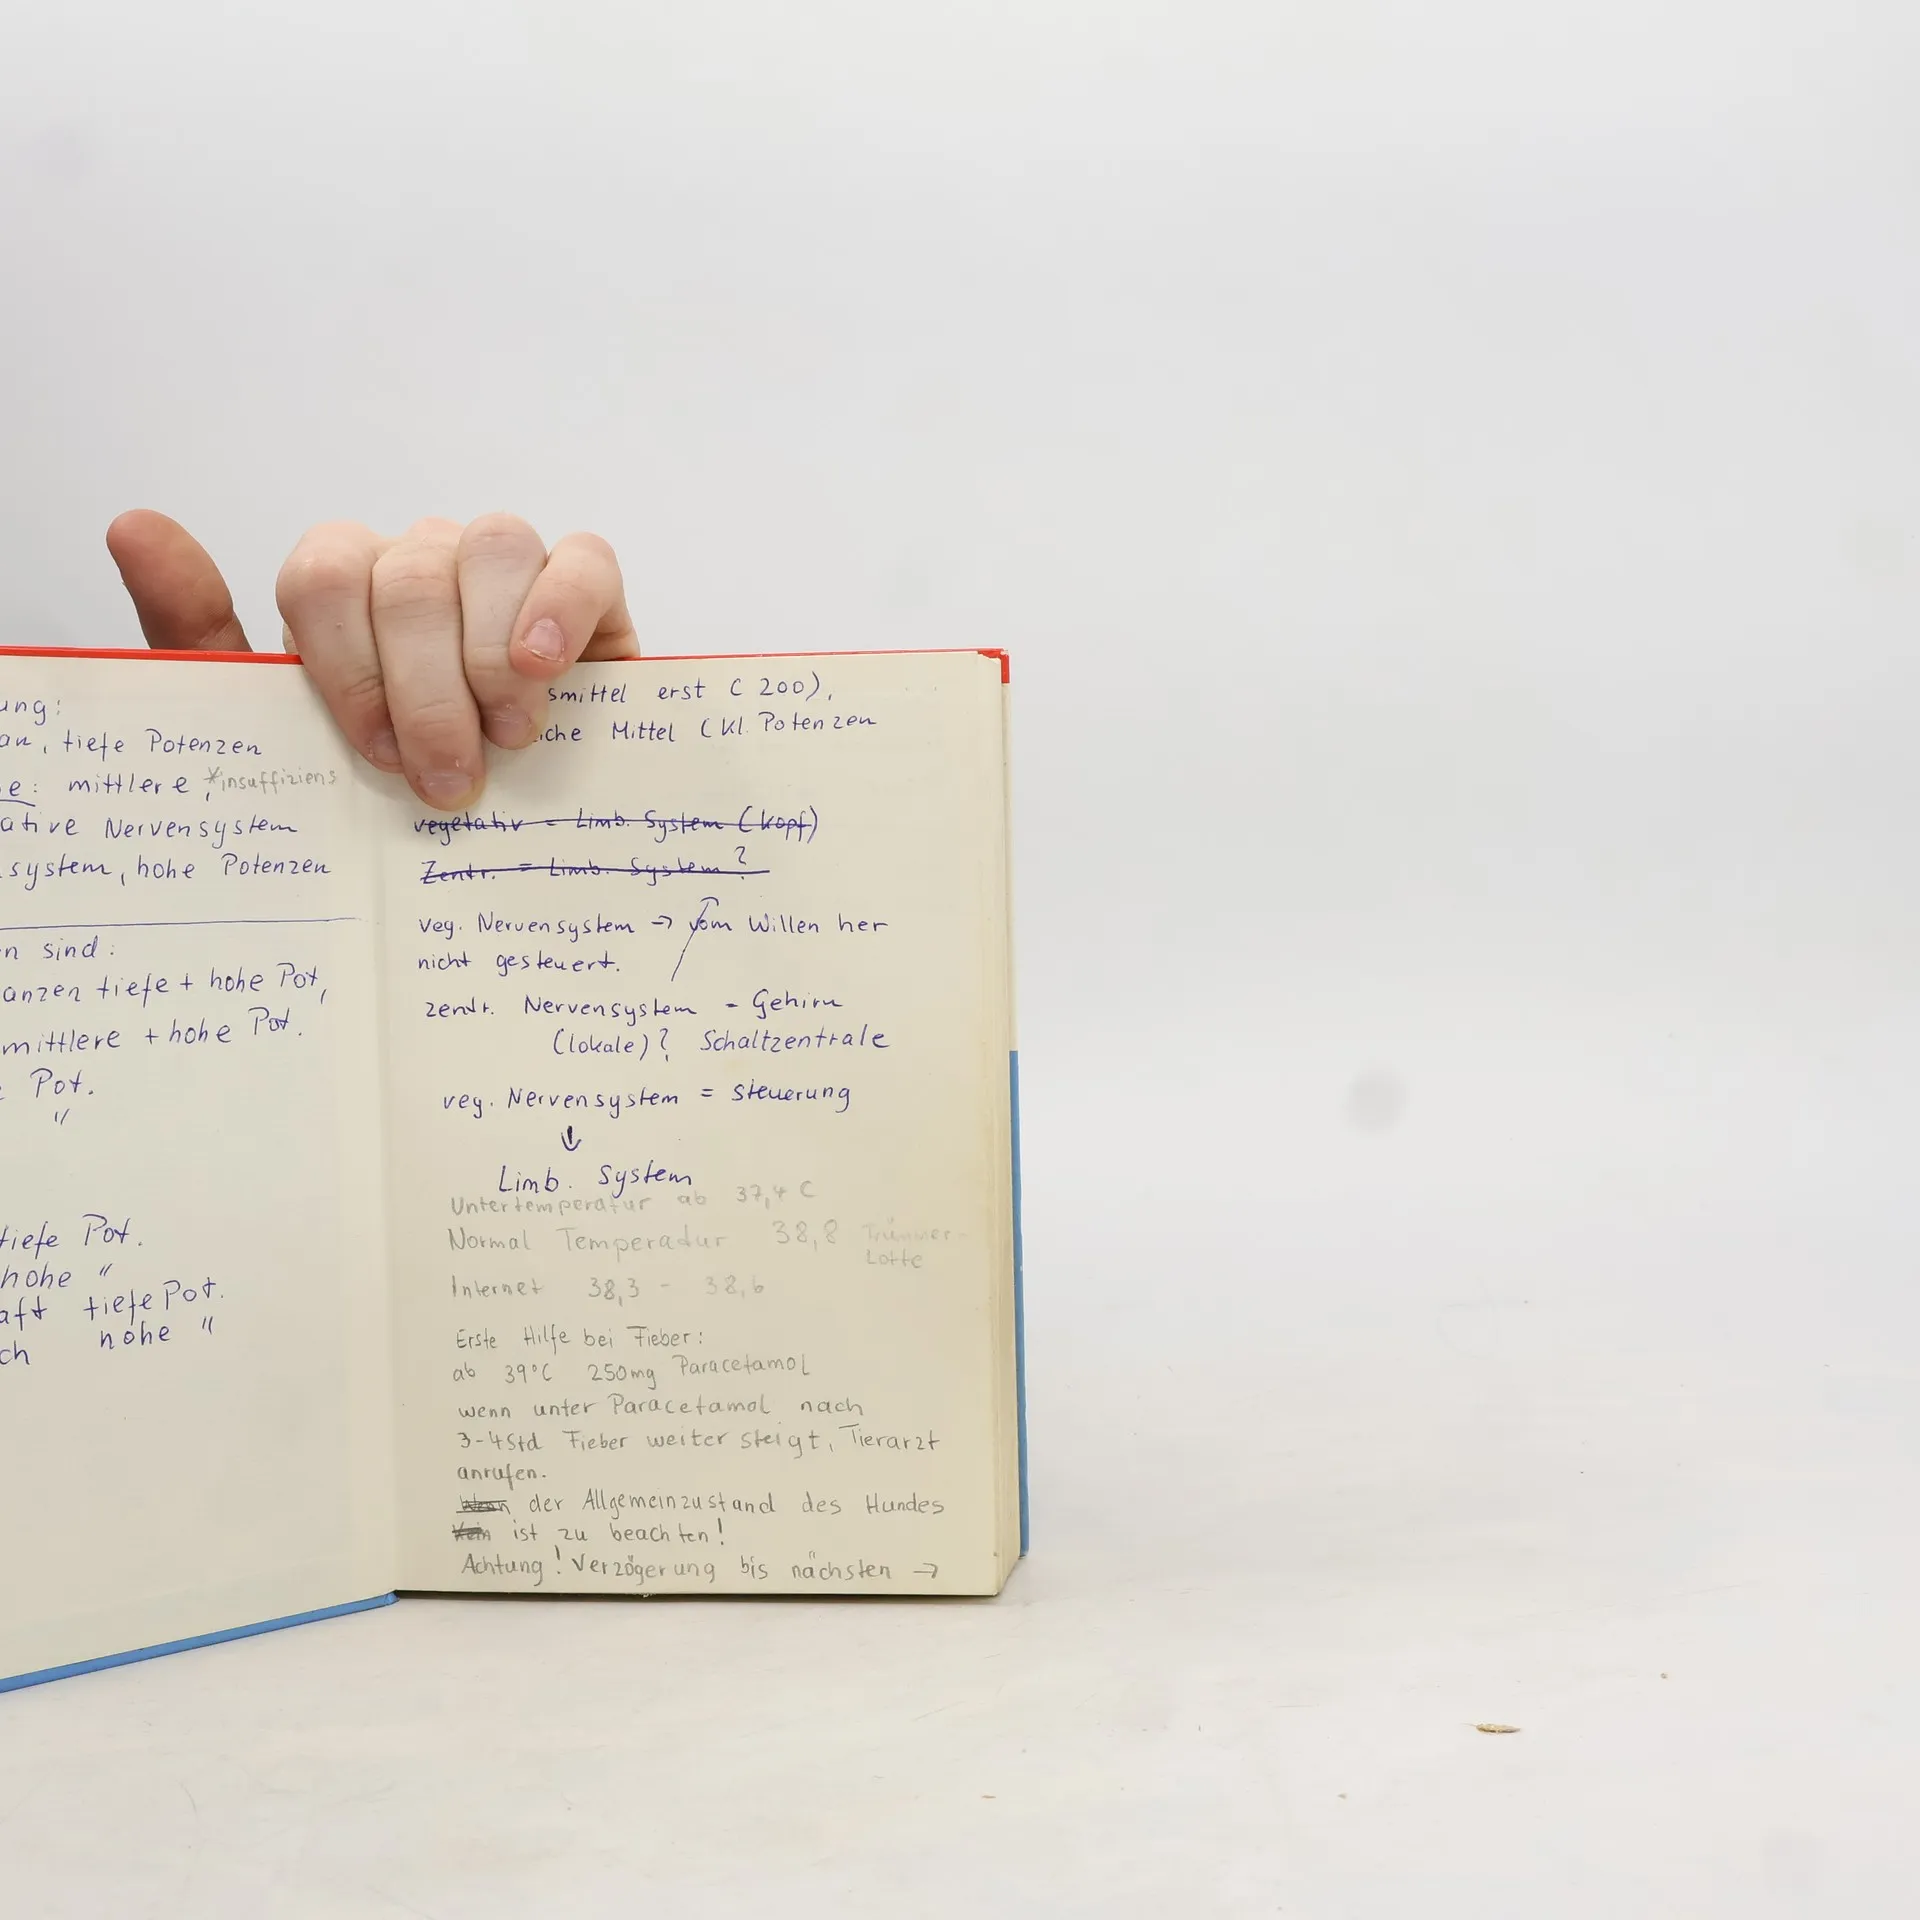 ung:
an, tiefe Potenzen
e: mittlere *insuffiziens
ative Nervensystem
system, hohe Potenzen
n sind:
anzen tiefe + hohe Pot,
mittlere + hohe Pot.
Pot.
"
tiefe Pot.
hohe "
aft tiefe Pot.
ch hohe "
smittel erst C 200),
iche Mittel (Kl. Potenzen
vegetativ = Limb. System (Kopf)
Zentr. = Limb. System?
veg. Nervensystem → vom Willen her
nicht gesteuert.
zentr. Nervensystem = Gehirn
(lokale)? Schaltzentrale
veg. Nervensystem = steuerung
↓
Limb. System
Untertemperatur ab 37,4 C
Normal Temperatur 38,8
Lotte
Internet 38,3 - 38,6
Erste Hilfe bei Fieber:
ab 39°C 250mg Paracetamol
wenn unter Paracetamol nach
3-4 Std Fieber weiter steigt, Tierarzt
anrufen.
Wenn der Allgemeinzustand des Hundes
Kein ist zu beachten!
Achtung! Verzögerung bis nächsten →